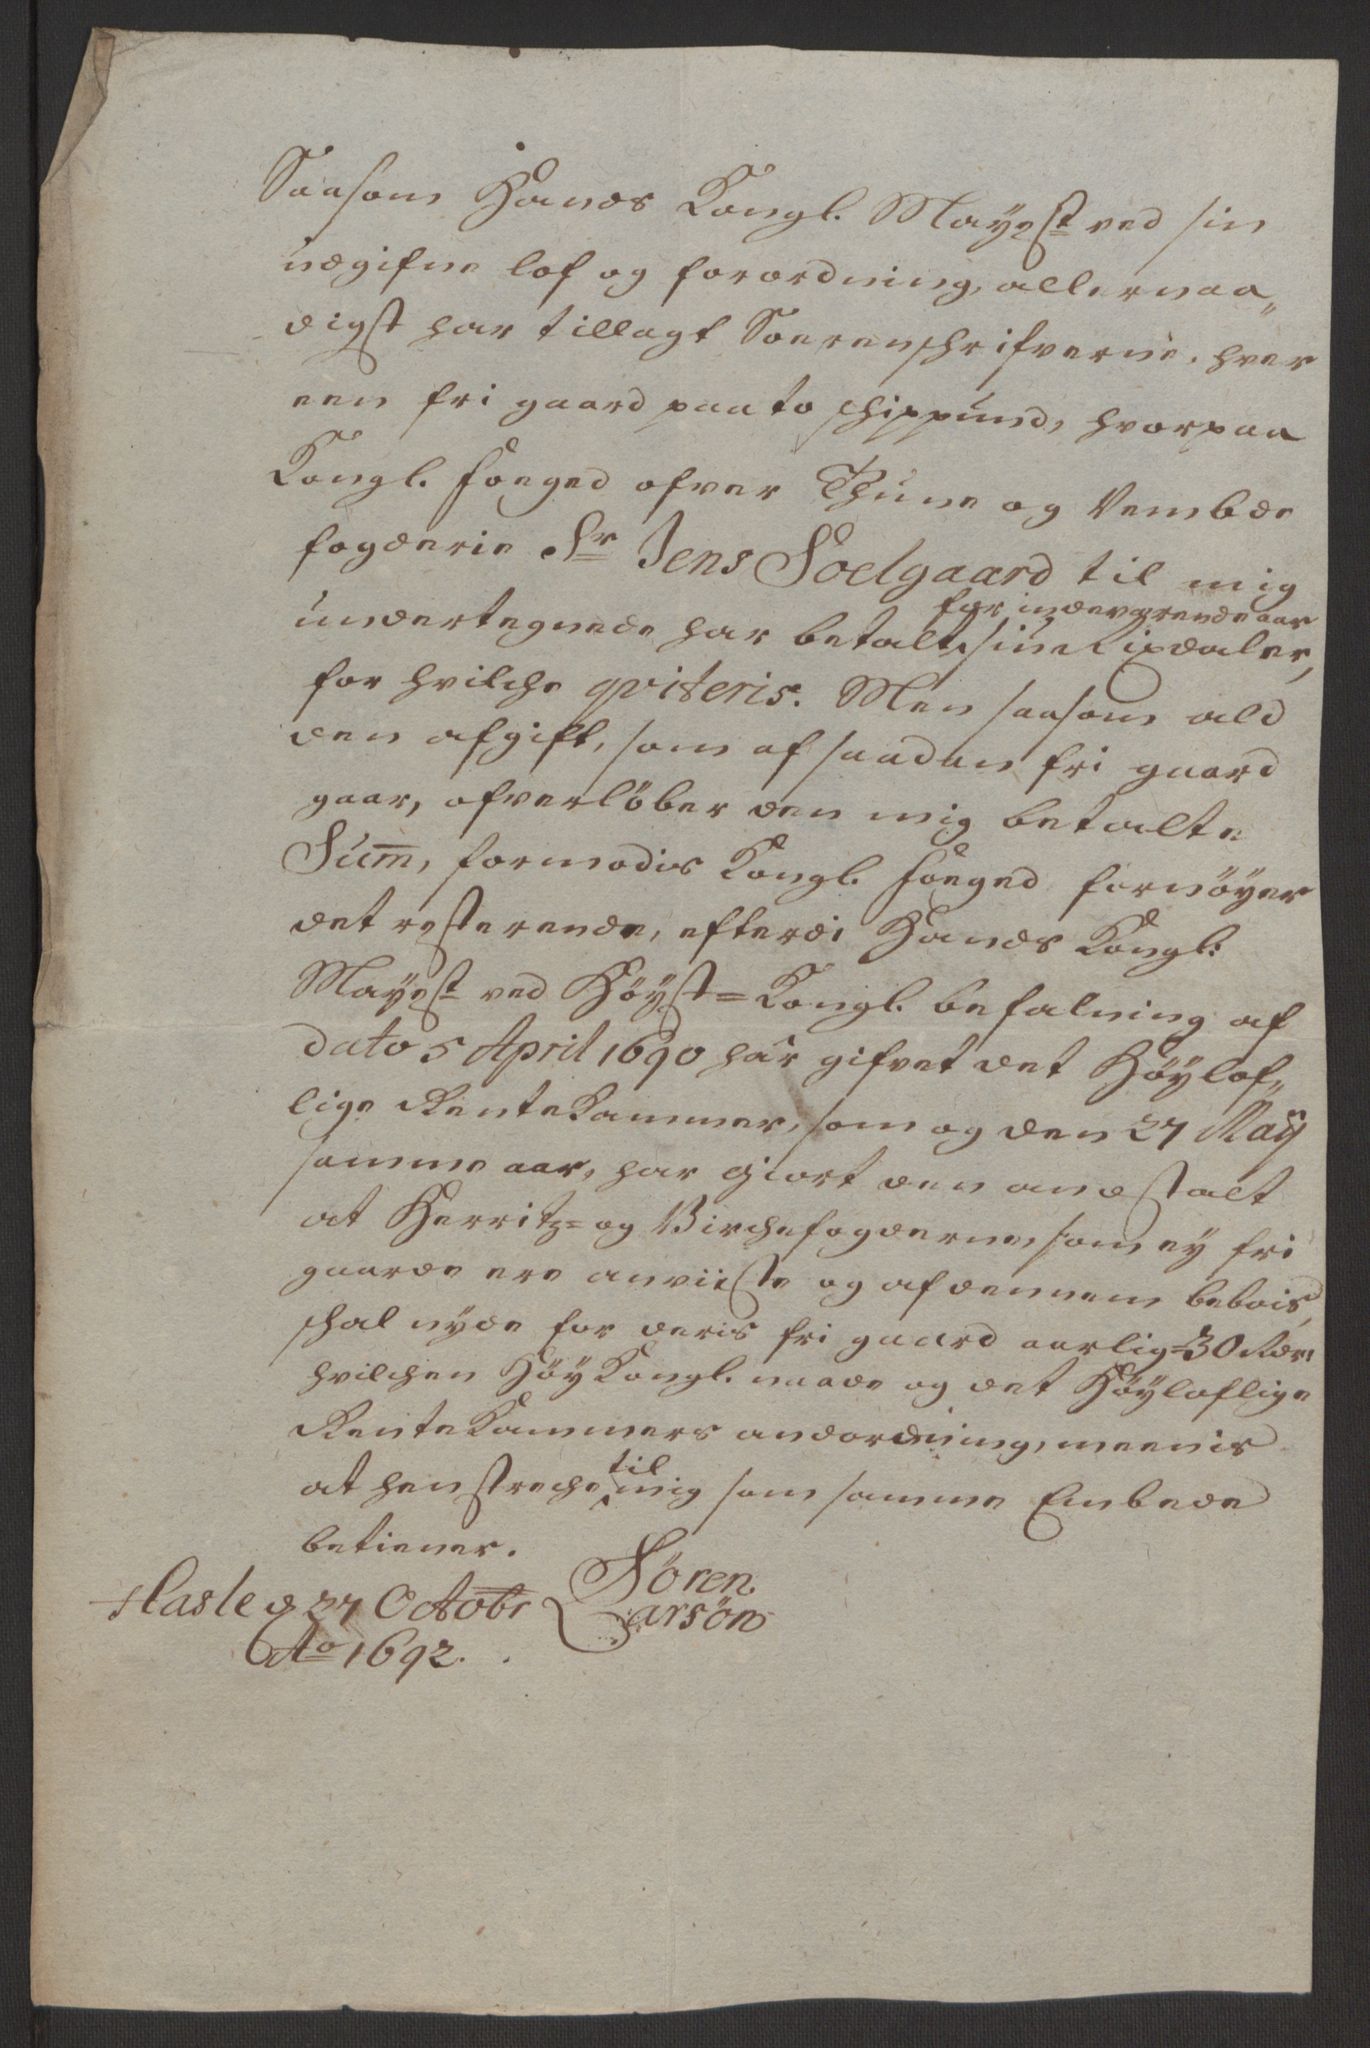 Saasom Hands Kongl. Mayest ved sin
udgifne lof og forordning, allernaa„
digst har tillagt Soerenschrifverne, hver
een fri gaard paa to schippund, hvorpaa
Kongl. foeged ofver Thune og Vembde
fogderie Sr Jens Soelgaard til mig
for indeværende aar
undertegnede har betalt siu Rixdaler,
for hvilche qviteris. Men saasom ald
den afgift, som af saadan fri gaard
gaar, ofverlöber den mig betalte
Sum̄, formodis Kongl. foeged fornöyer
det resterende, efterdi Hands Kongl.
Mayest ved Höyst=Kongl. befalning af
dato 5 April 1690 har gifvet det Höylof„
lige Rentekammer, som og den 27 Maÿ
samme aar, har giort den andstalt
at Herritz= og Birchefogderne, som ey fri
gaarde ere anviiste og af dennem bebois,
schal nyde for deris fri gaard aarlig=30 Rdr.
hvilchen Höy Kongl. naade og det Höyloflige
RenteKammers andordning, meenis
til
at henstreche mig som samme Embede
betiener.
Hasle d 27 Octobr Sören
Larsön
Ao 1692.